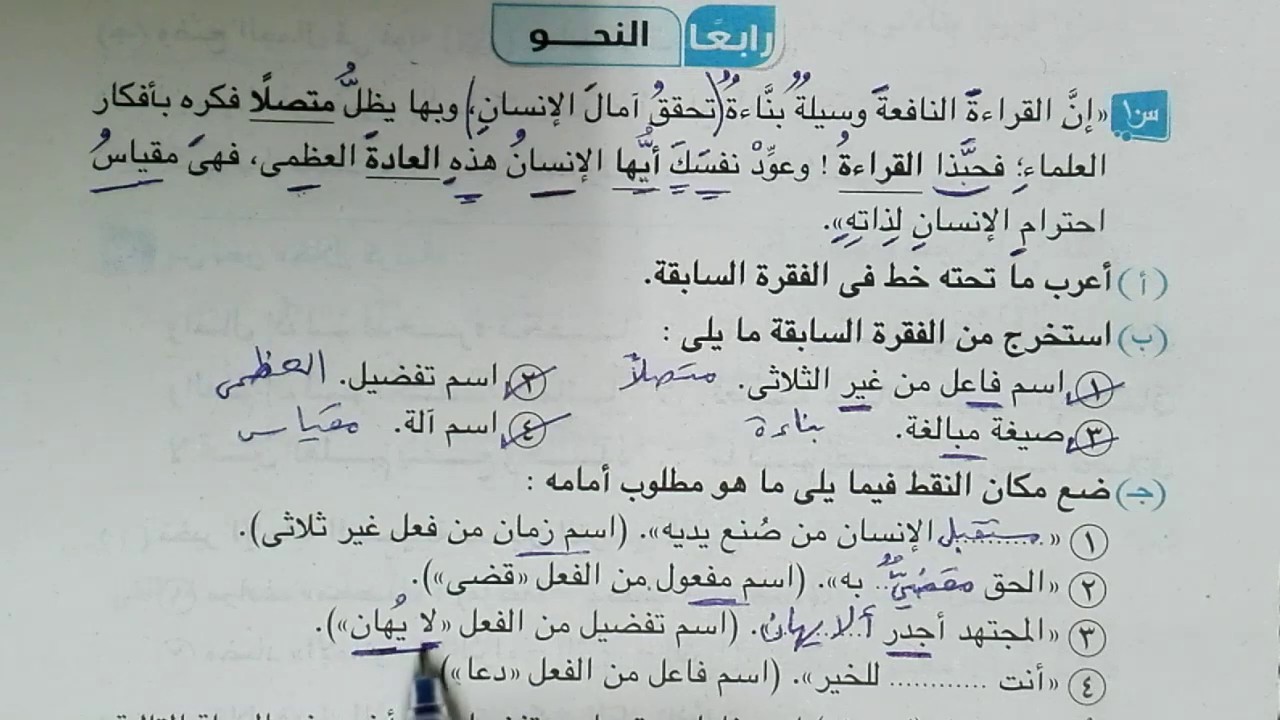 رابعًا النحـــو
س١ «إنَّ القراءةَ النافعةَ وسيلةٌ بنَّاءةٌ (تحققُ آمالَ الإنسانِ)، وبها يظلُّ متصلًا فكره بأفكار
العلماءِ؛ فحبَّذا القراءةُ ! وعوِّدْ نفسَكَ أيُّها الإنسانُ هذهِ العادةَ العظمى، فهىَ مقياسُ
احترامِ الإنسانِ لِذاتهِ».
(أ) أعرب ما تحته خط فى الفقرة السابقة.
(ب) استخرج من الفقرة السابقة ما يلى :
١ اسم فاعل من غير الثلاثى. متصلاً ٢ اسم تفضيل. العظمى
٣ صيغة مبالغة. بناءة ٤ اسم آلة. مقياس
(جـ) ضع مكان النقط فيما يلى ما هو مطلوب أمامه :
١ «مستقبل الإنسان من صُنع يديه». (اسم زمان من فعل غير ثلاثى).
٢ «الحق مقضىٌّ به». (اسم مفعول من الفعل «قضى»).
٣ «المجتهد أجدر ألا يهان». (اسم تفضيل من الفعل «لا يُهان»).
٤ «أنت ............ للخير». (اسم فاعل من الفعل «دعا»)